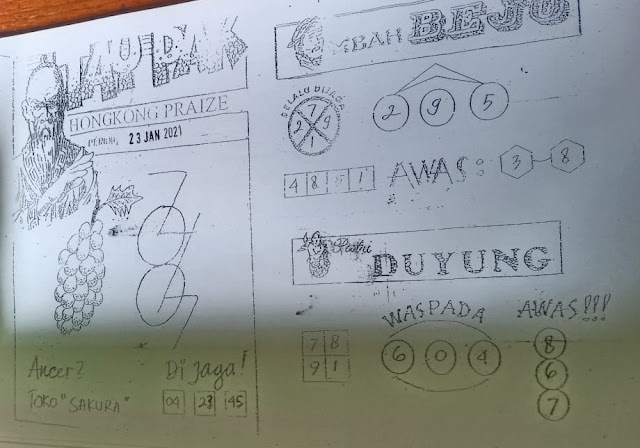 HONGKONG PRAIZE
23 JAN 2021
Ancer2
Di jaga!
TOKO "SAKURA"
04 23 45
MBAH BEJO
SELALU DIJAGA
7
2 9
1
2 9 5
4 8 5 1
AWAS: 3 8
DUYUNG
WASPADA
6 0 4
7 8
9 1
AWAS!!!
8
6
7